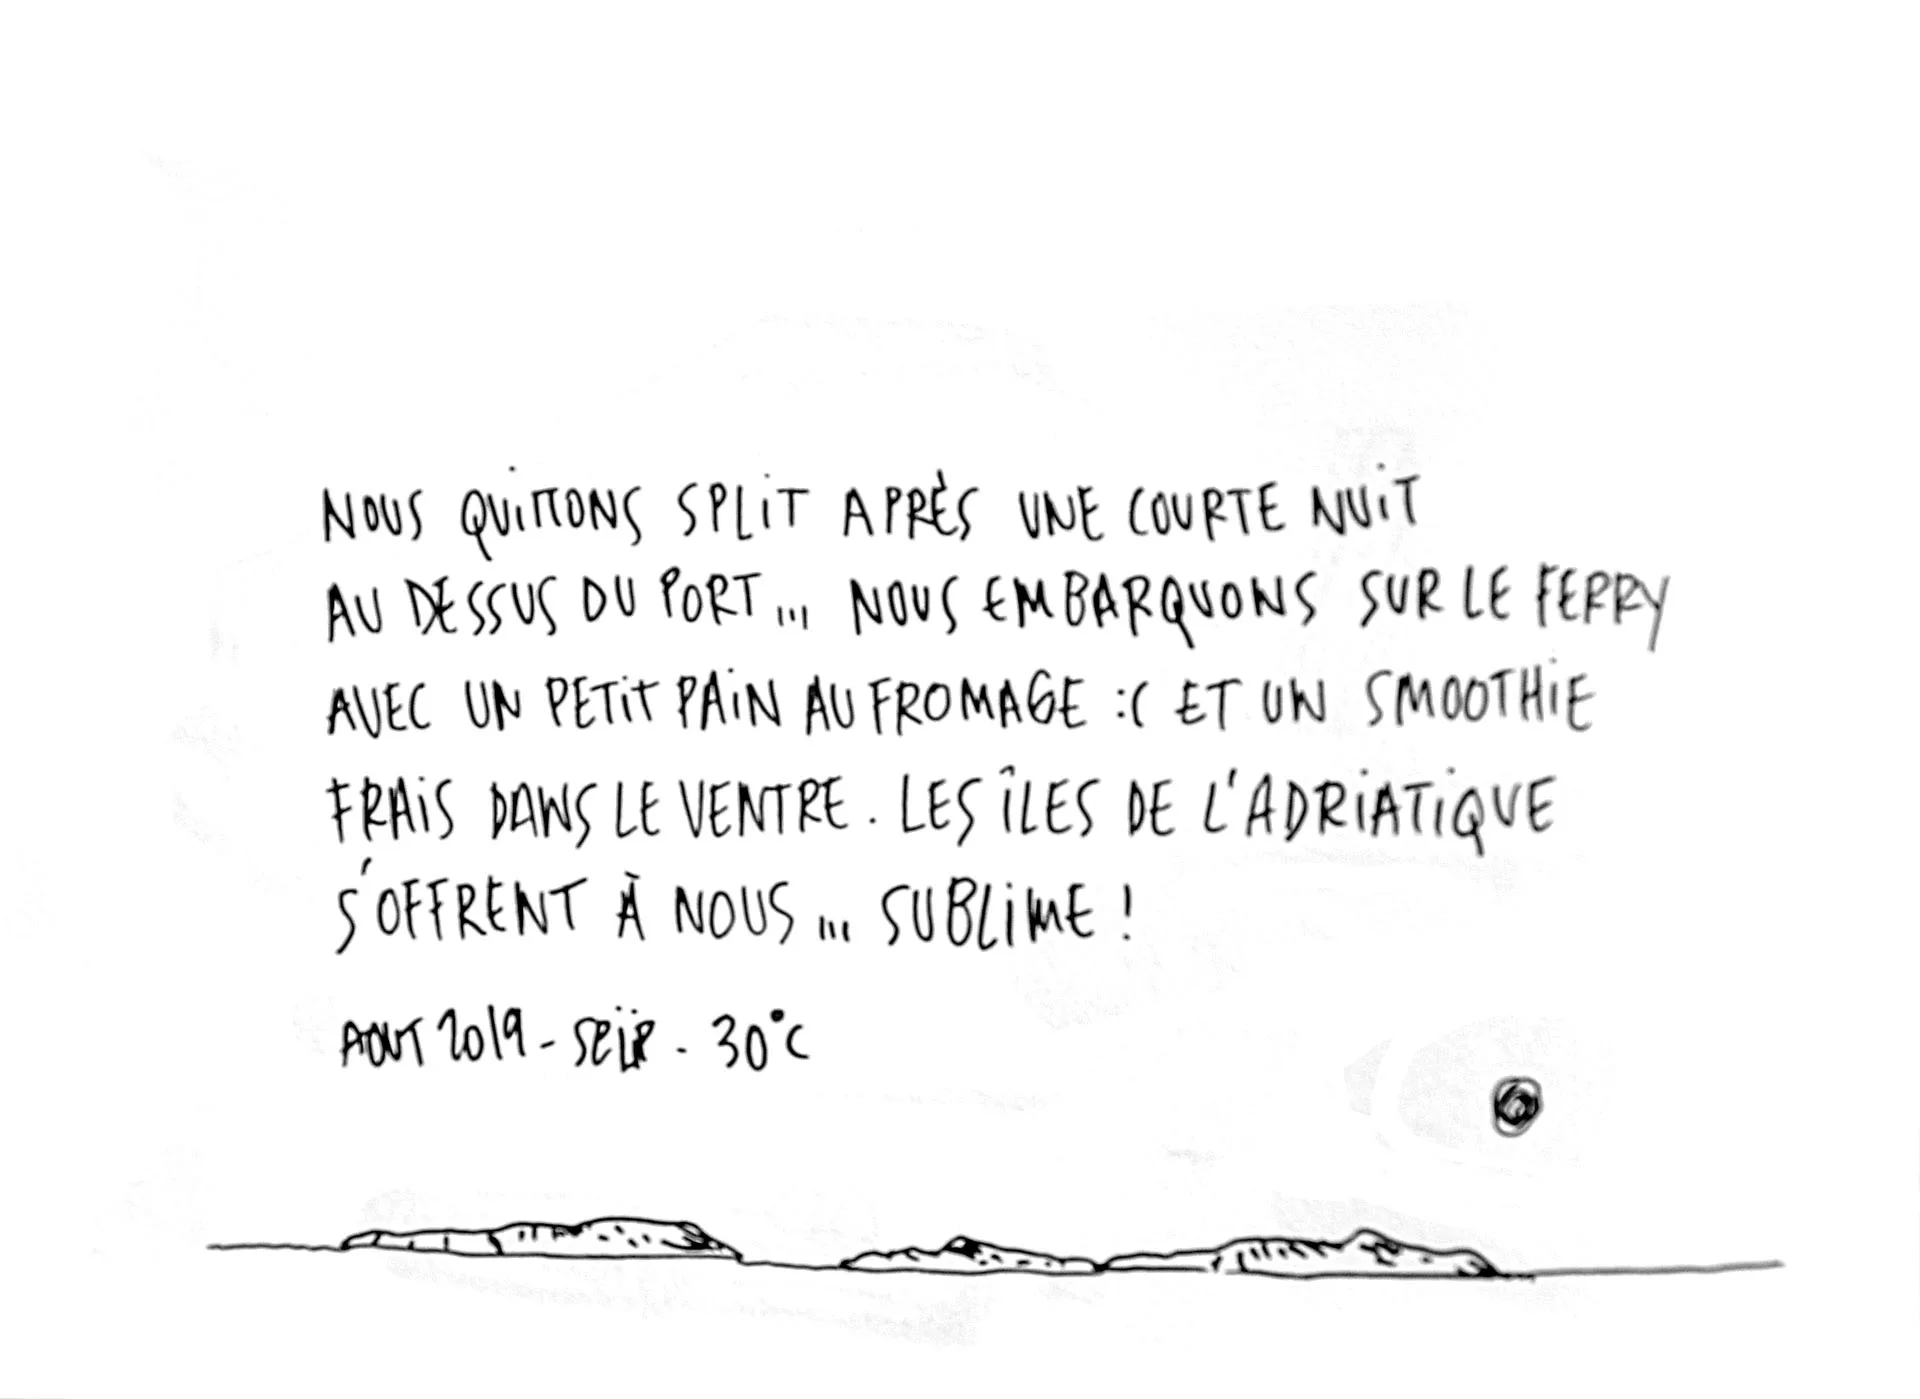 NOUS QUiTTONS SPLiT APRÈS UNE COURTE NUiT
AU DESSUS DU PORT... NOUS EMBARQUONS SUR LE FERRY
AVEC UN PETiT PAiN AU FROMAGE :( ET UN SMOOTHiE
FRAiS DANS LE VENTRE. LES ÎLES DE L'ADRiATiQUE
S'OFFRENT À NOUS... SUBLiME !
AOUT 2019 - - 30°C